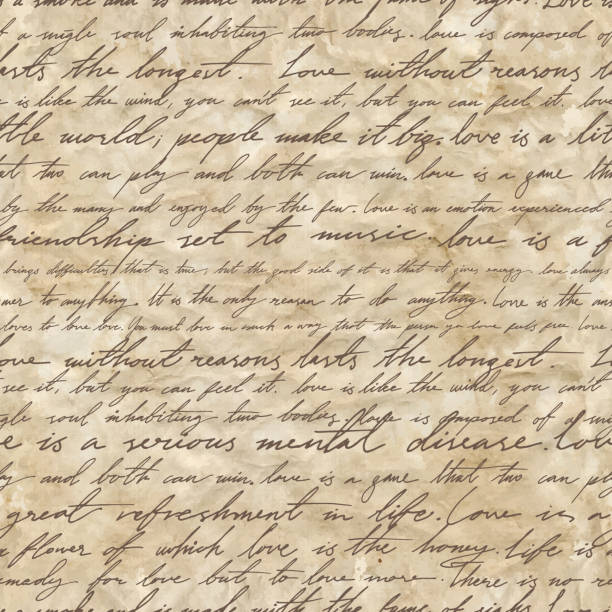 a smoke and is made with the fume of sighs. Love is
a single soul inhabiting two bodies. love is composed of
lasts the longest. Love without reasons
is like the wind, you can't see it, but you can feel it. love
little world; people make it big. love is a lit
at two can play and both can win. love is a game tha
by the many and enjoyed by the few. Love is an emotion experienced
friendship set to music. love is a f
brings difficulties, that is true, but the good side of it is that it gives energy. love always
wer to anything. It is the only reason to do anything. Love is the ans
loves to love love. You must love in such a way that the person you love feels free. Love
love without reasons lasts the longest. L
see it, but you can feel it. love is like the wind, you can't
ngle soul inhabiting two bodies. Love is composed of a sin
e is a serious mental disease. Love
ay and both can win. love is a game that two can play
great refreshment in life. Love is a
a flower of which love is the honey. life is
emedy for love but to love more. There is no re
a smoke and is made with the fume of sighs. Love